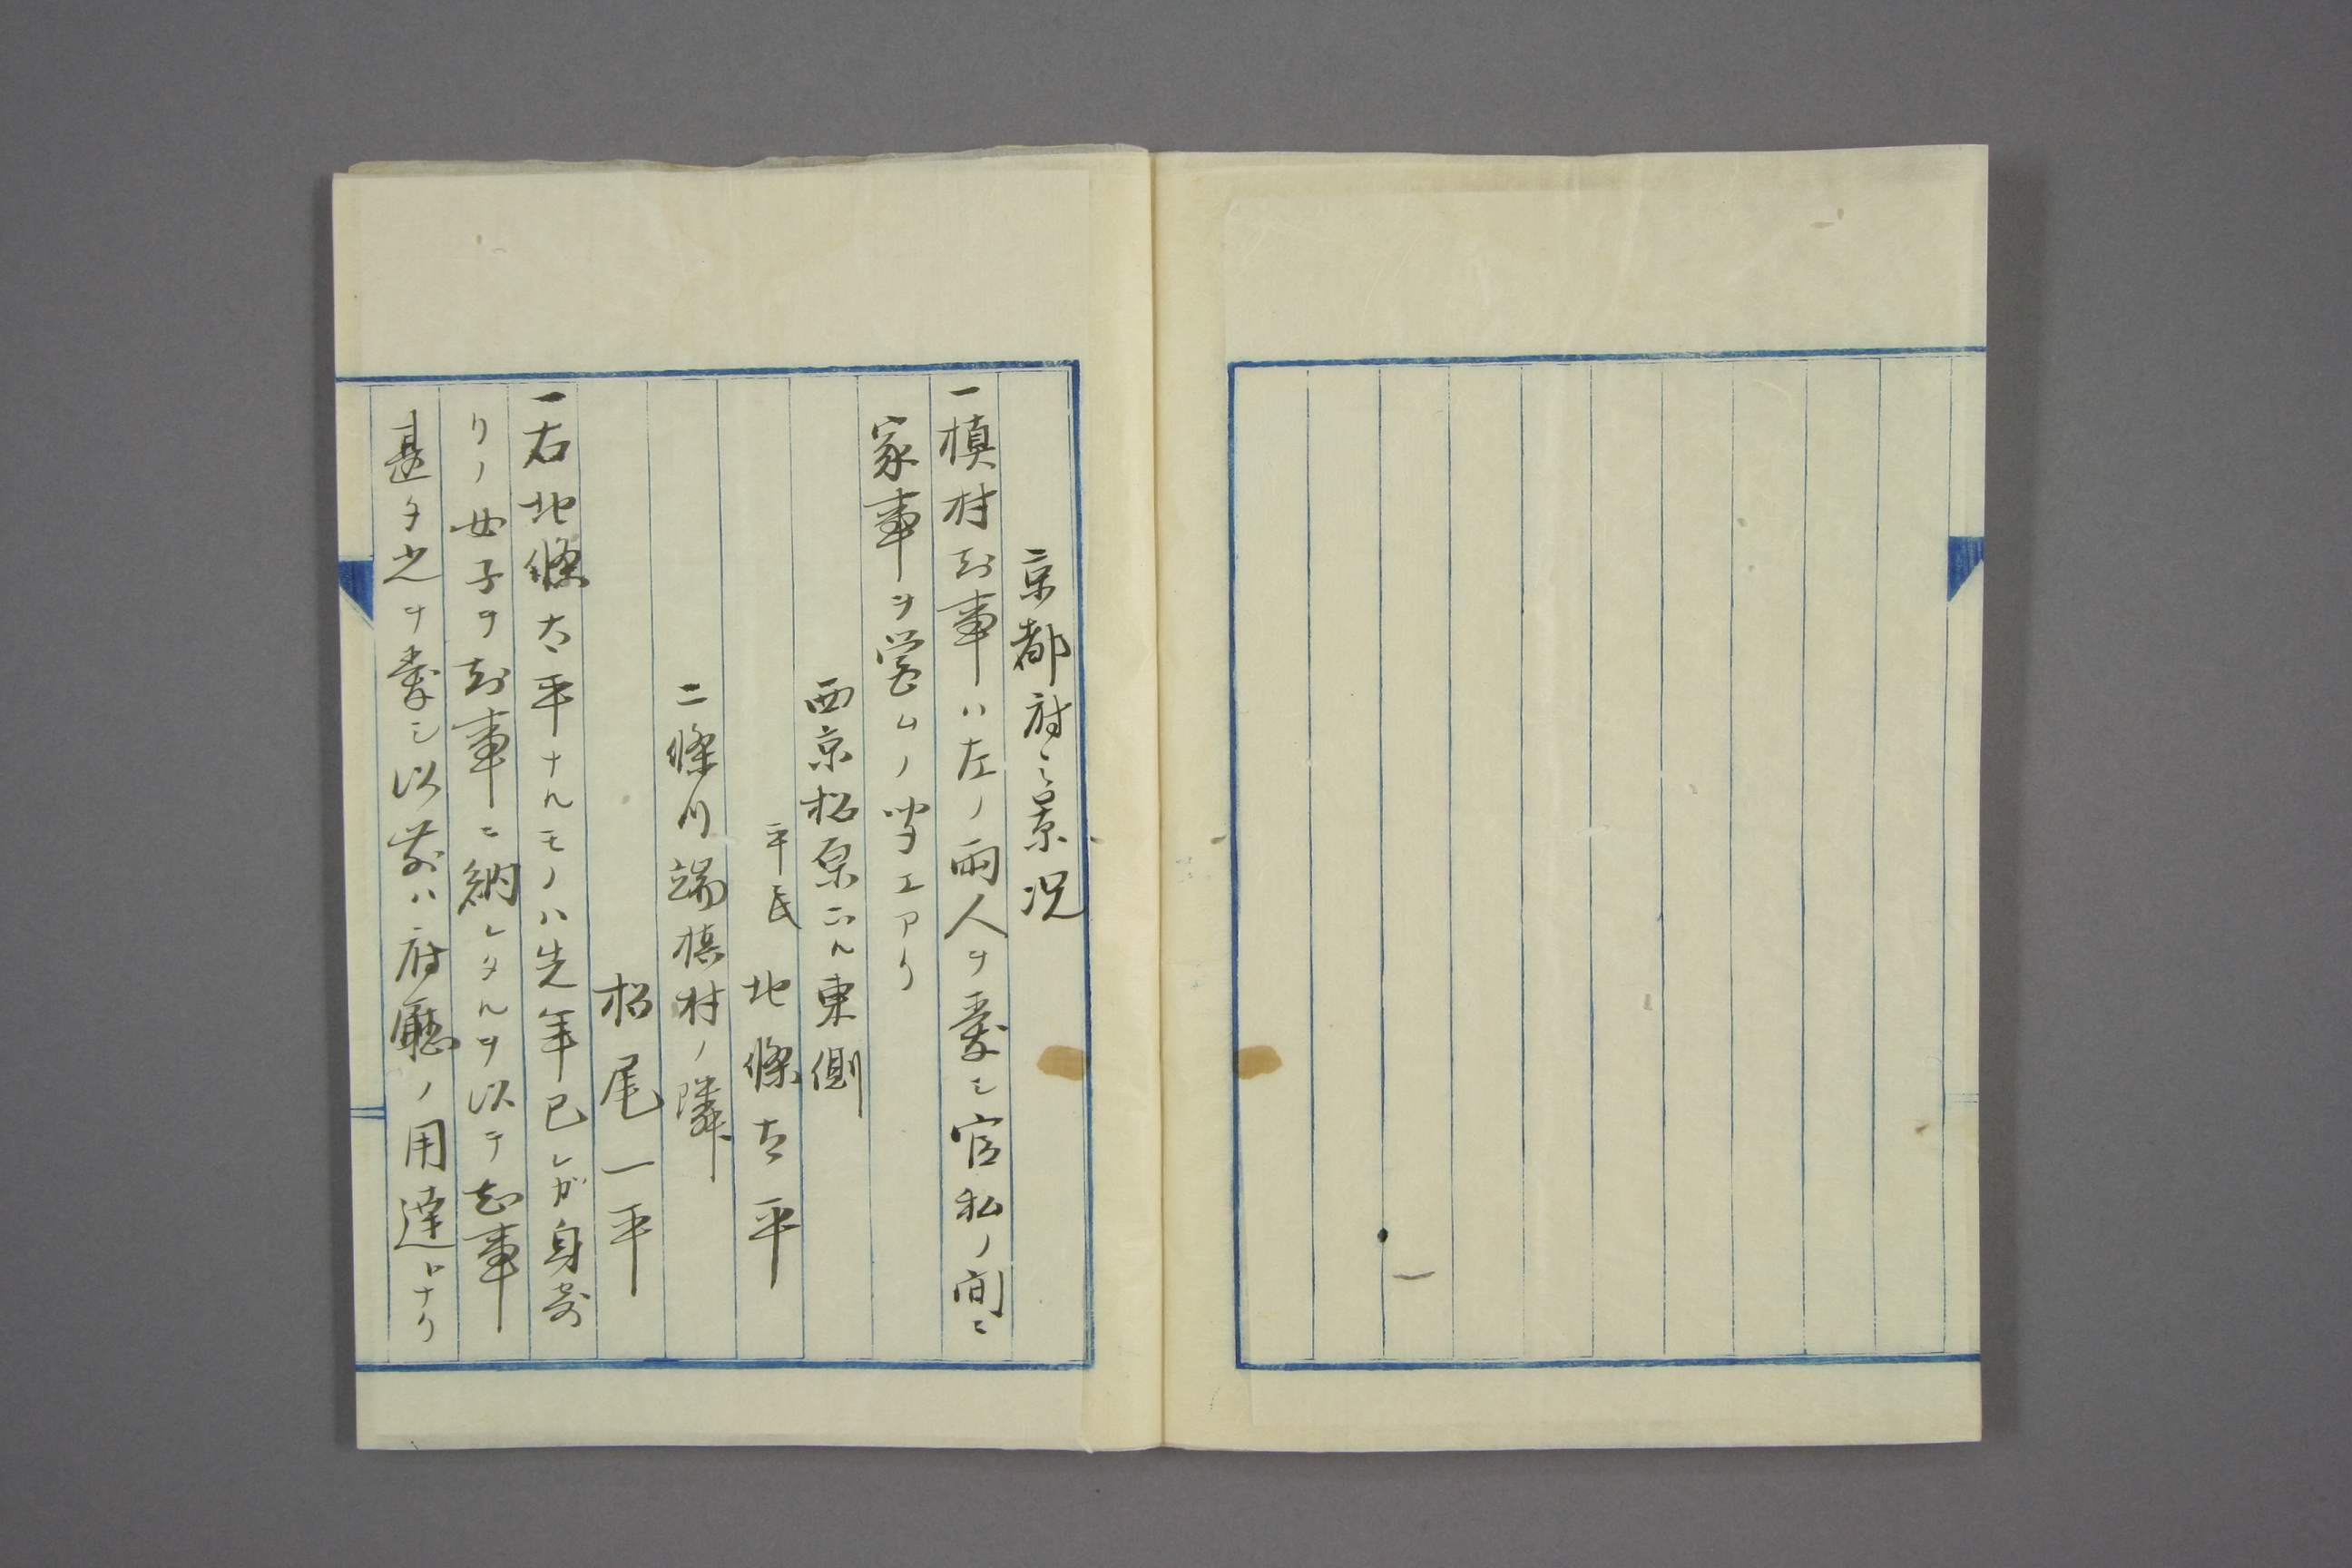 京都府之景況
一槙村知事ハ左ノ両人ヲ愛シ官私ノ間ニ
家事ヲ営ムノ聞エアリ
西京松原下ル東側
平民 北條太平
二條川端槙村ノ隣
松尾一平
一右北條太平ナルモノハ先年己レガ身寄
リノ女子ヲ知事ニ納レタルヲ以テ知事
甚タ之ヲ愛シ以前ハ府廳ノ用達トナリ